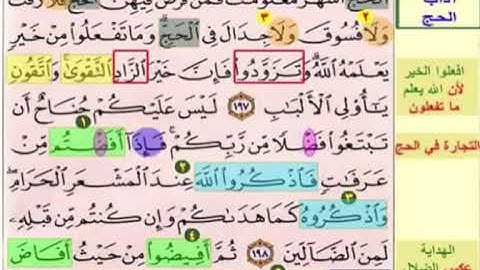 الحج أشهر معلومات فمن فرض فيهن الحج فلا رفث
وَلَا فُسُوقَ وَلَا جِدَالَ فِي الْحَجِّ وَمَا تَفْعَلُوا مِنْ خَيْرٍ
يَعْلَمْهُ اللَّهُ وَتَزَوَّدُوا فَإِنَّ خَيْرَ الزَّادِ التَّقْوَىٰ وَاتَّقُونِ
يَا أُولِي الْأَلْبَابِ ١٩٧ لَيْسَ عَلَيْكُمْ جُنَاحٌ أَن
تَبْتَغُوا فَضْلًا مِّن رَّبِّكُمْ فَإِذَا أَفَضْتُم مِّنْ
عَرَفَاتٍ فَاذْكُرُوا اللَّهَ عِندَ الْمَشْعَرِ الْحَرَامِ
وَاذْكُرُوهُ كَمَا هَدَاكُمْ وَإِن كُنتُم مِّن قَبْلِهِ
لَمِنَ الضَّالِّينَ ١٩٨ ثُمَّ أَفِيضُوا مِنْ حَيْثُ أَفَاضَ
آداب
الحج
افعلوا الخير
لأن الله يعلم
ما تفعلون
التجارة في الحج
الهداية
عكس الضلال
٢
٣
١
٢
٣
٤